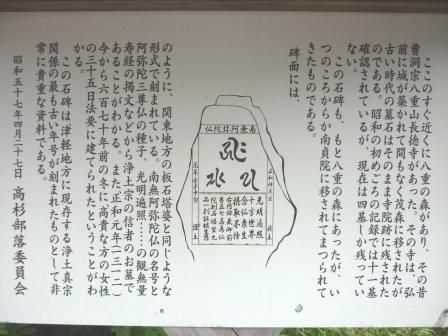 ここのすぐ近くに八重の森があり、その昔
曹洞宗八重山長徳寺があった。その寺は、弘
前に城が築かれて間もなく茂森に移されたが
古い時代の墓石はそのまま寺院跡に残された
のである。昭和の初めごろの記録では十一基
確認されているが、現在は四基しか残ってい
ない。
この石碑も、もと八重の森にあったが、い
つのころからか南貞院に移されてまつられて
きたものである。
碑面には、
南無阿弥陀仏
正和
光明遍照
十方世界
念仏衆生
摂取不捨
のように、関東地方の板石塔婆と同じような
形式で刻まれている。南無阿弥陀仏の名号と
阿弥陀三尊仏の種子、光明遍照……の観無量
寿経の掲文などから浄土宗の信者のお墓で
あることがわかる。また正和元年(一三一二)
今から六百七十年前の冬に、高貴な方の女性
の三十五日法要に建てられたということがわ
かる。
この石碑は津軽地方に現存する浄土真宗
関係の最も古い年号が刻まれたものとして非
常に貴重な資料である。
昭和五十七年四月二十七日 高杉部落委員会